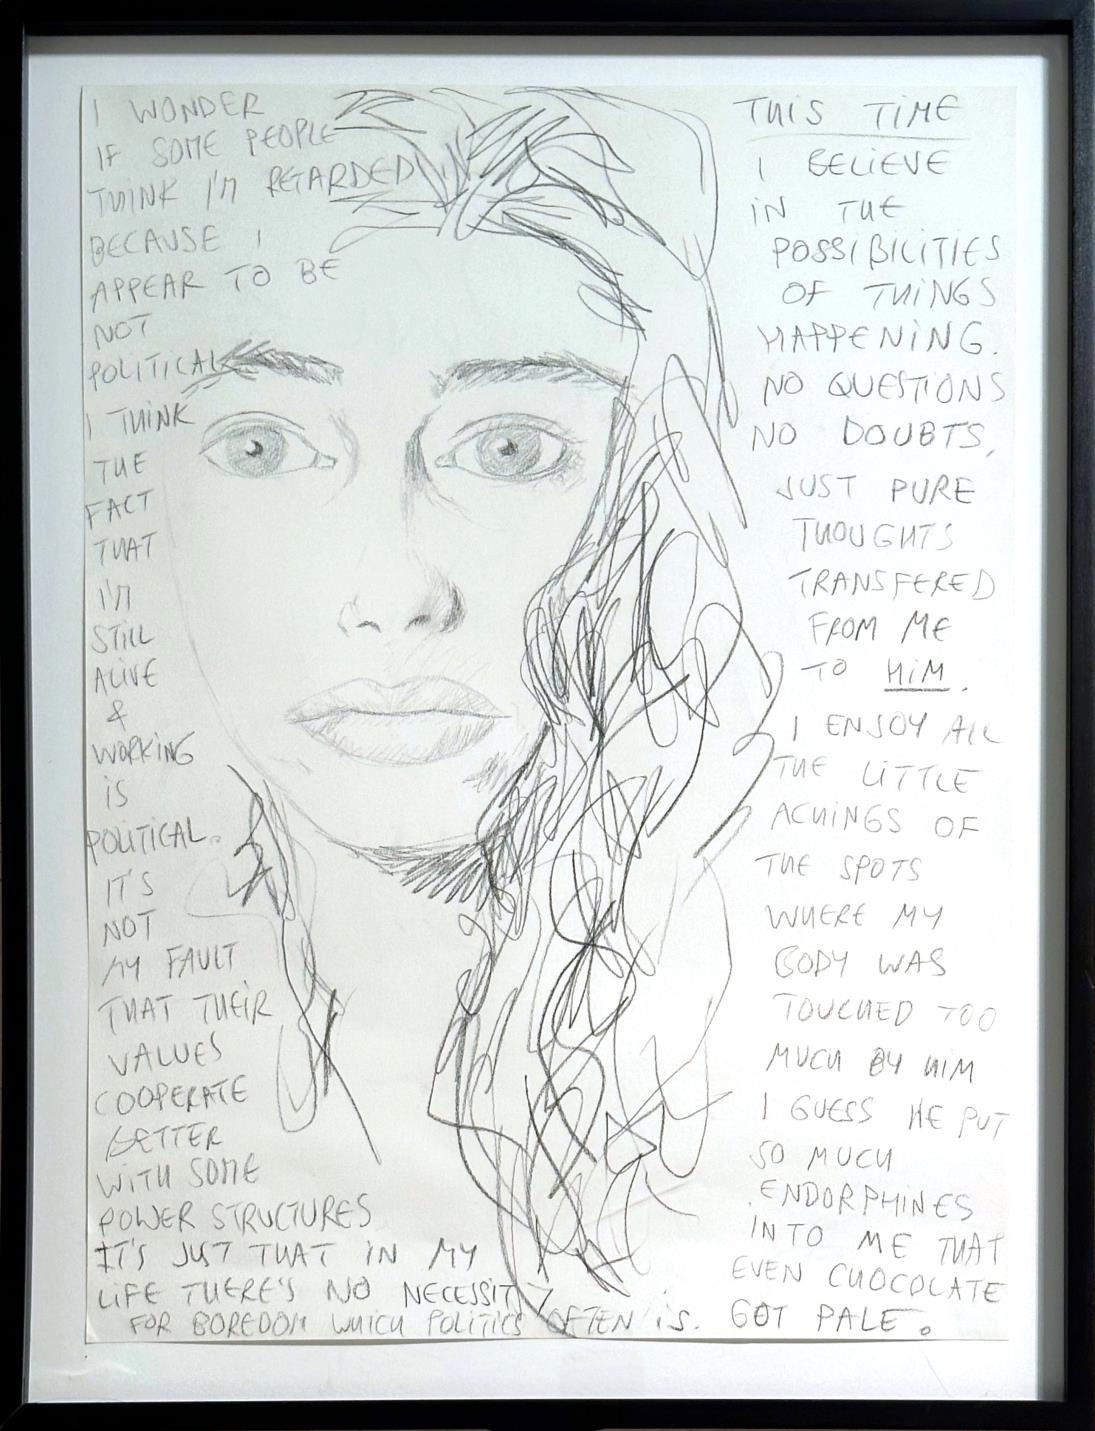 I WONDER
IF SOME PEOPLE
THINK I'M REGARDED
BECAUSE I
APPEAR TO BE
NOT
POLITICAL
I THINK
THE
FACT
THAT
I'M
STILL
ALIVE
&
WORKING
IS
POLITICAL.
IT'S
NOT
MY FAULT
THAT THEIR
VALUES
COOPERATE
BETTER
WITH SOME
POWER STRUCTURES
IT'S JUST THAT IN MY
LIFE THERE'S NO NECESSITY
FOR BOREDOM WHICH POLITICS OFTEN IS.
THIS TIME
I BELIEVE
IN THE
POSSIBILITIES
OF THINGS
HAPPENING.
NO QUESTIONS
NO DOUBTS,
JUST PURE
THOUGHTS
TRANSFERED
FROM ME
TO HIM.
I ENJOY ALL
THE LITTLE
ACHINGS OF
THE SPOTS
WHERE MY
BODY WAS
TOUCHED TOO
MUCH BY HIM
I GUESS HE PUT
SO MUCH
ENDORPHINES
INTO ME THAT
EVEN CHOCOLATE
GOT PALE.